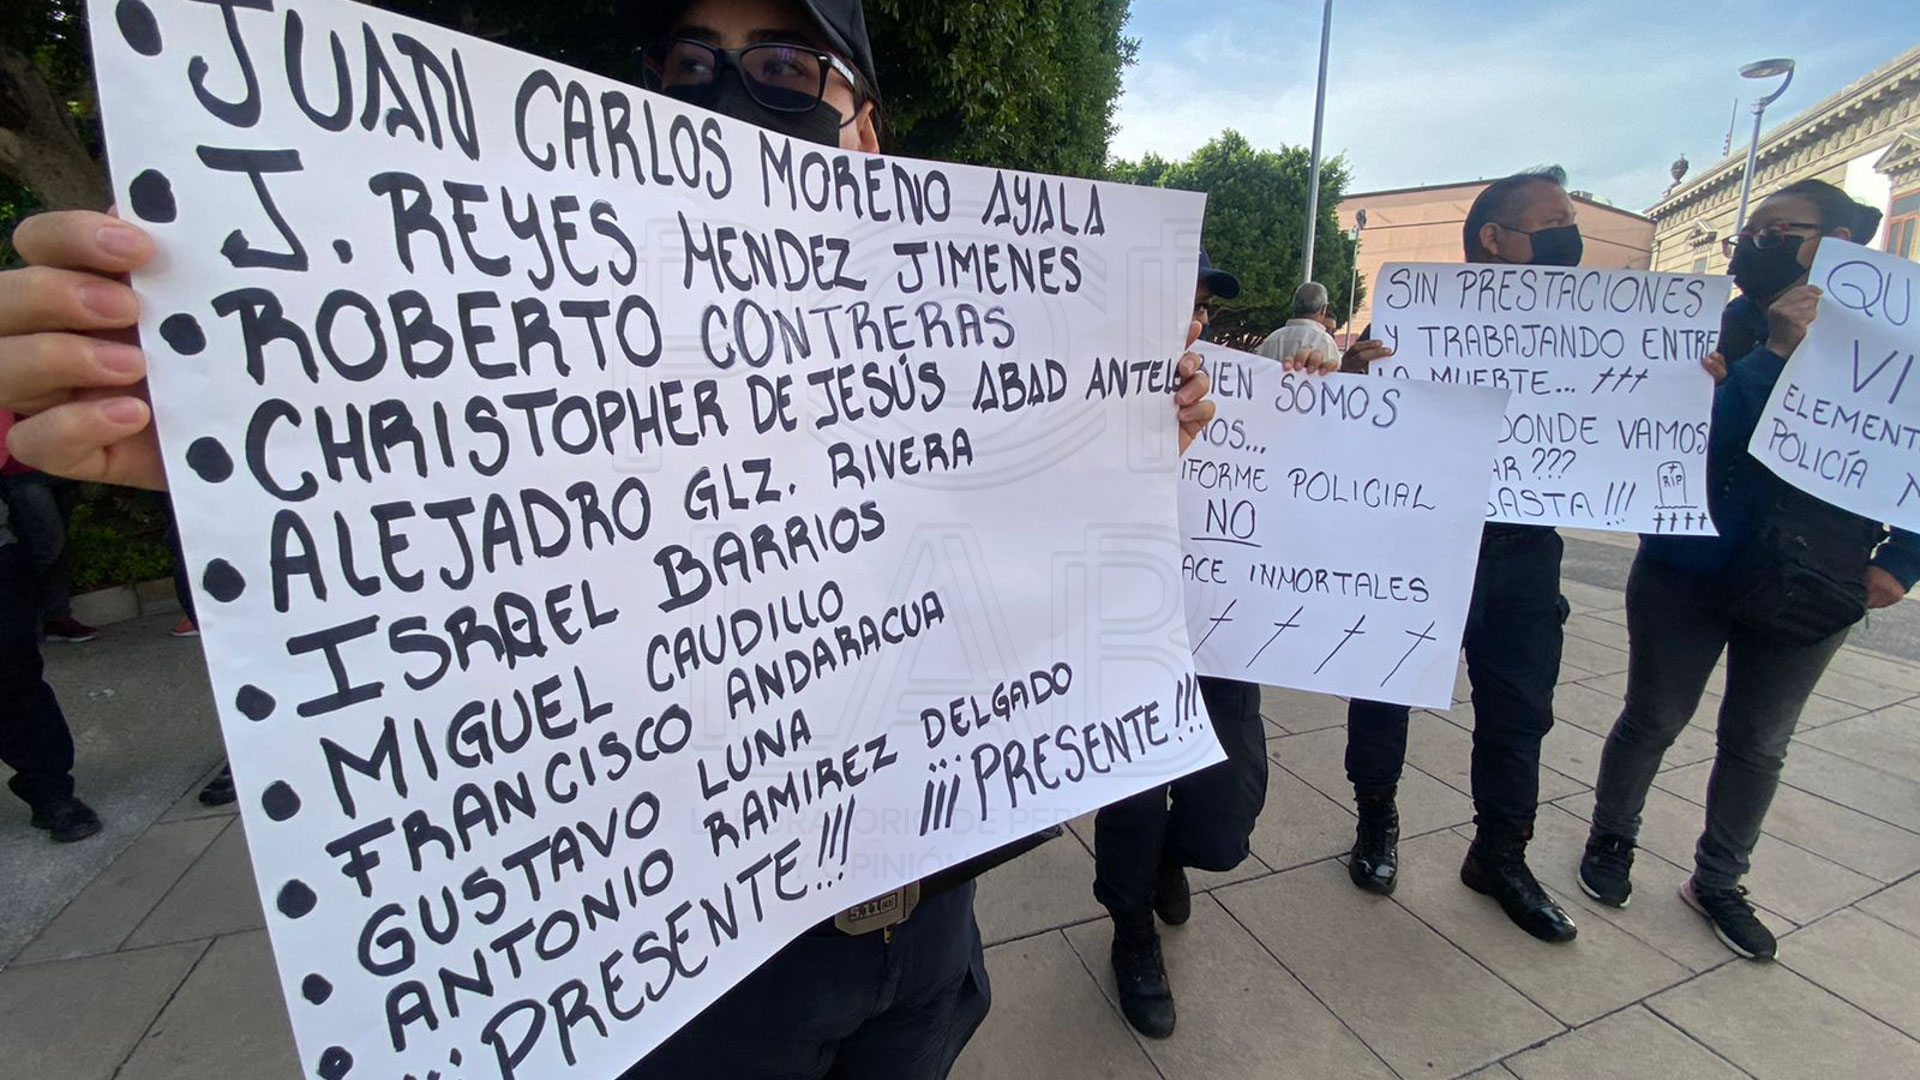 • JUAN CARLOS MORENO AYALA
• J. REYES MENDEZ JIMENES
• ROBERTO CONTRERAS
• CHRISTOPHER DE JESÚS ABAD ANTELE
• ALEJADRO GLZ. RIVERA
• ISRAEL BARRIOS
• MIGUEL CAUDILLO
• FRANCISCO ANDARACUA
• GUSTAVO LUNA
• ANTONIO RAMIREZ DELGADO
¡¡¡PRESENTE!!! ¡¡¡PRESENTE!!!
BIEN SOMOS
NOS...
IFORME POLICIAL
NO
ACE INMORTALES
SIN PRESTACIONES
Y TRABAJANDO ENTRE
LA MUERTE... †††
DONDE VAMOS
AR ???
BASTA !!!
RIP
QU
VI
ELEMENT
POLICÍA N
POP
LAB
LABORATORIO DE PER
Y OPINIÓN
5.11